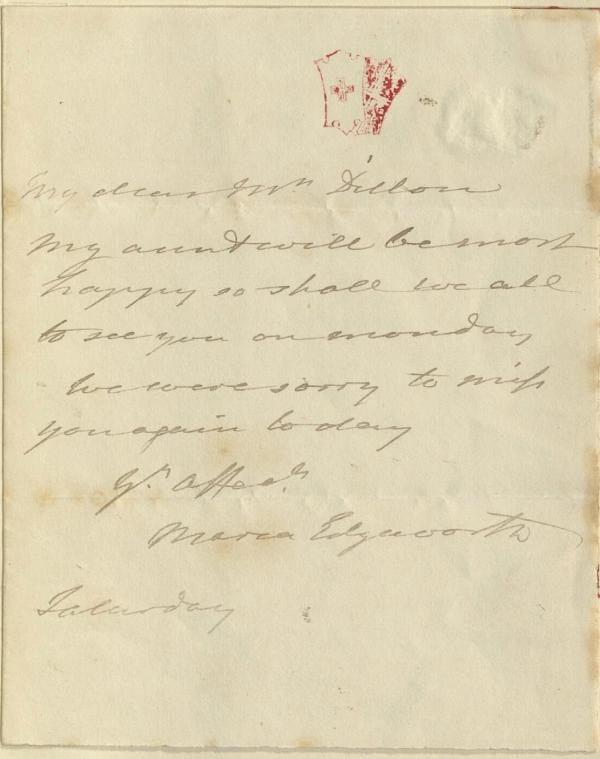 My dear Mrs Dillon
My aunt will be most
happy so shall we all
to see you on monday
We were sorry to miss
you again to day
Yrs affecly
Maria Edgeworth
Saturday